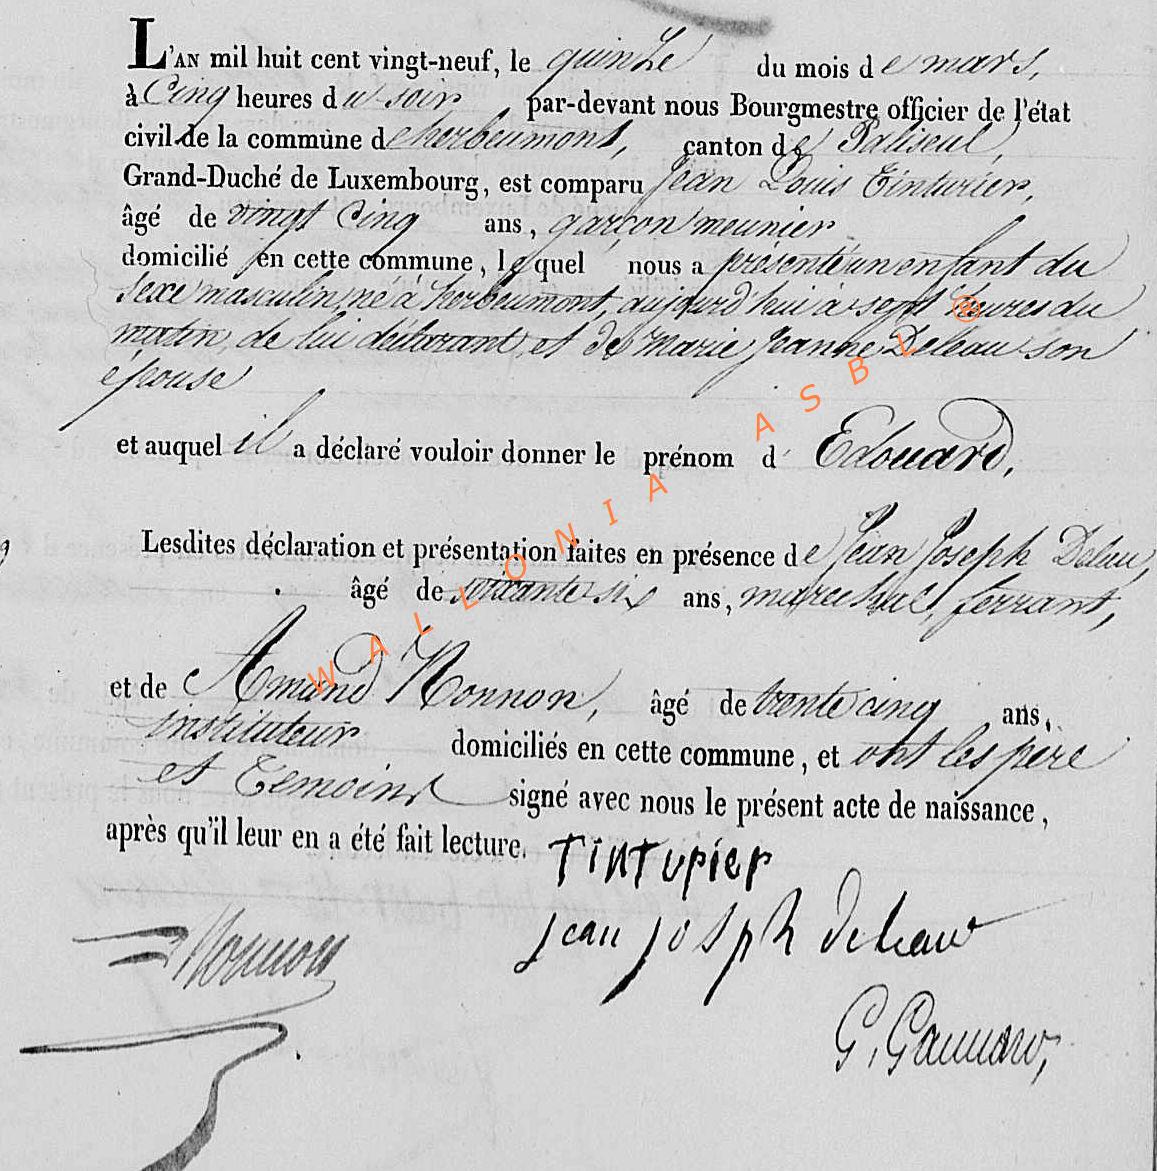 L'AN mil huit cent vingt-neuf, le quinze du mois de mars,
à Cinq heures du soir par-devant nous Bourgmestre officier de l'état
civil de la commune de herbeumont, canton de Paliseul,
Grand-Duché de Luxembourg, est comparu Jean Louis Tinturier,
âgé de vingt Cinq ans, garçon meunier
domicilié en cette commune, lequel nous a présenté un enfant du
sexe masculin, né à herbeumont, aujourd'hui à sept heures du
matin, de lui déclarant et de Marie Jeanne Deleau son
épouse
et auquel il a déclaré vouloir donner le prénom d' Edouard,
Lesdites déclaration et présentation faites en présence de Jean Joseph Deleau,
âgé de soixante six ans, mareshal, ferrant,
et de Amand Nonnon, âgé de trente cinq ans,
instituteur domiciliés en cette commune, et ont les père
et Temoins signé avec nous le présent acte de naissance,
après qu'il leur en a été fait lecture.
Tinturier
jean joseph deleau
Nonnon
WALLONIA ASBL ®